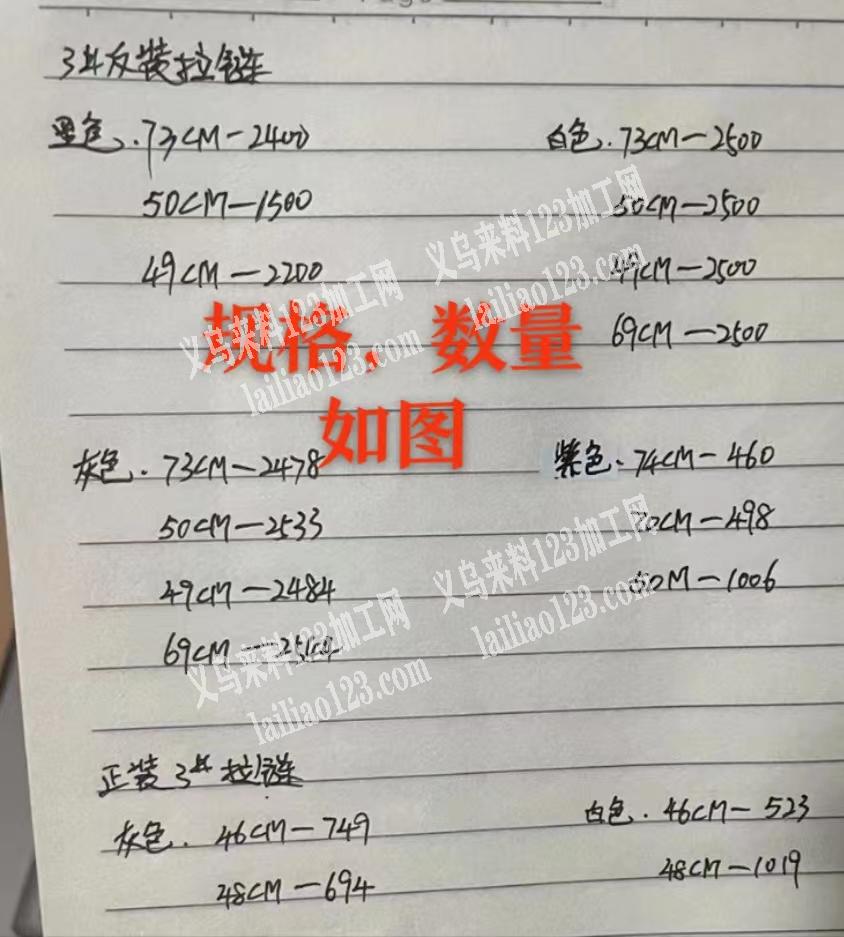 3#反装拉链
黑色.73CM-2400
白色.73CM-2500
50CM-1500
50CM-2500
49CM-2200
49CM-2500
69CM-2500
规格，数量
如图
灰色.73CM-2478
紫色.74CM-460
50CM-2533
70CM-498
49CM-2484
50M-1006
69CM
正装3#拉链
灰色.46CM-749
白色.46CM-523
48CM-694
48CM-1019
义乌来料123加工网
lailiao123.com
义乌来料123加工网
lailiao123.com
义乌来料123加工网
lailiao123.com
义乌来料123加工网
lailiao123.com